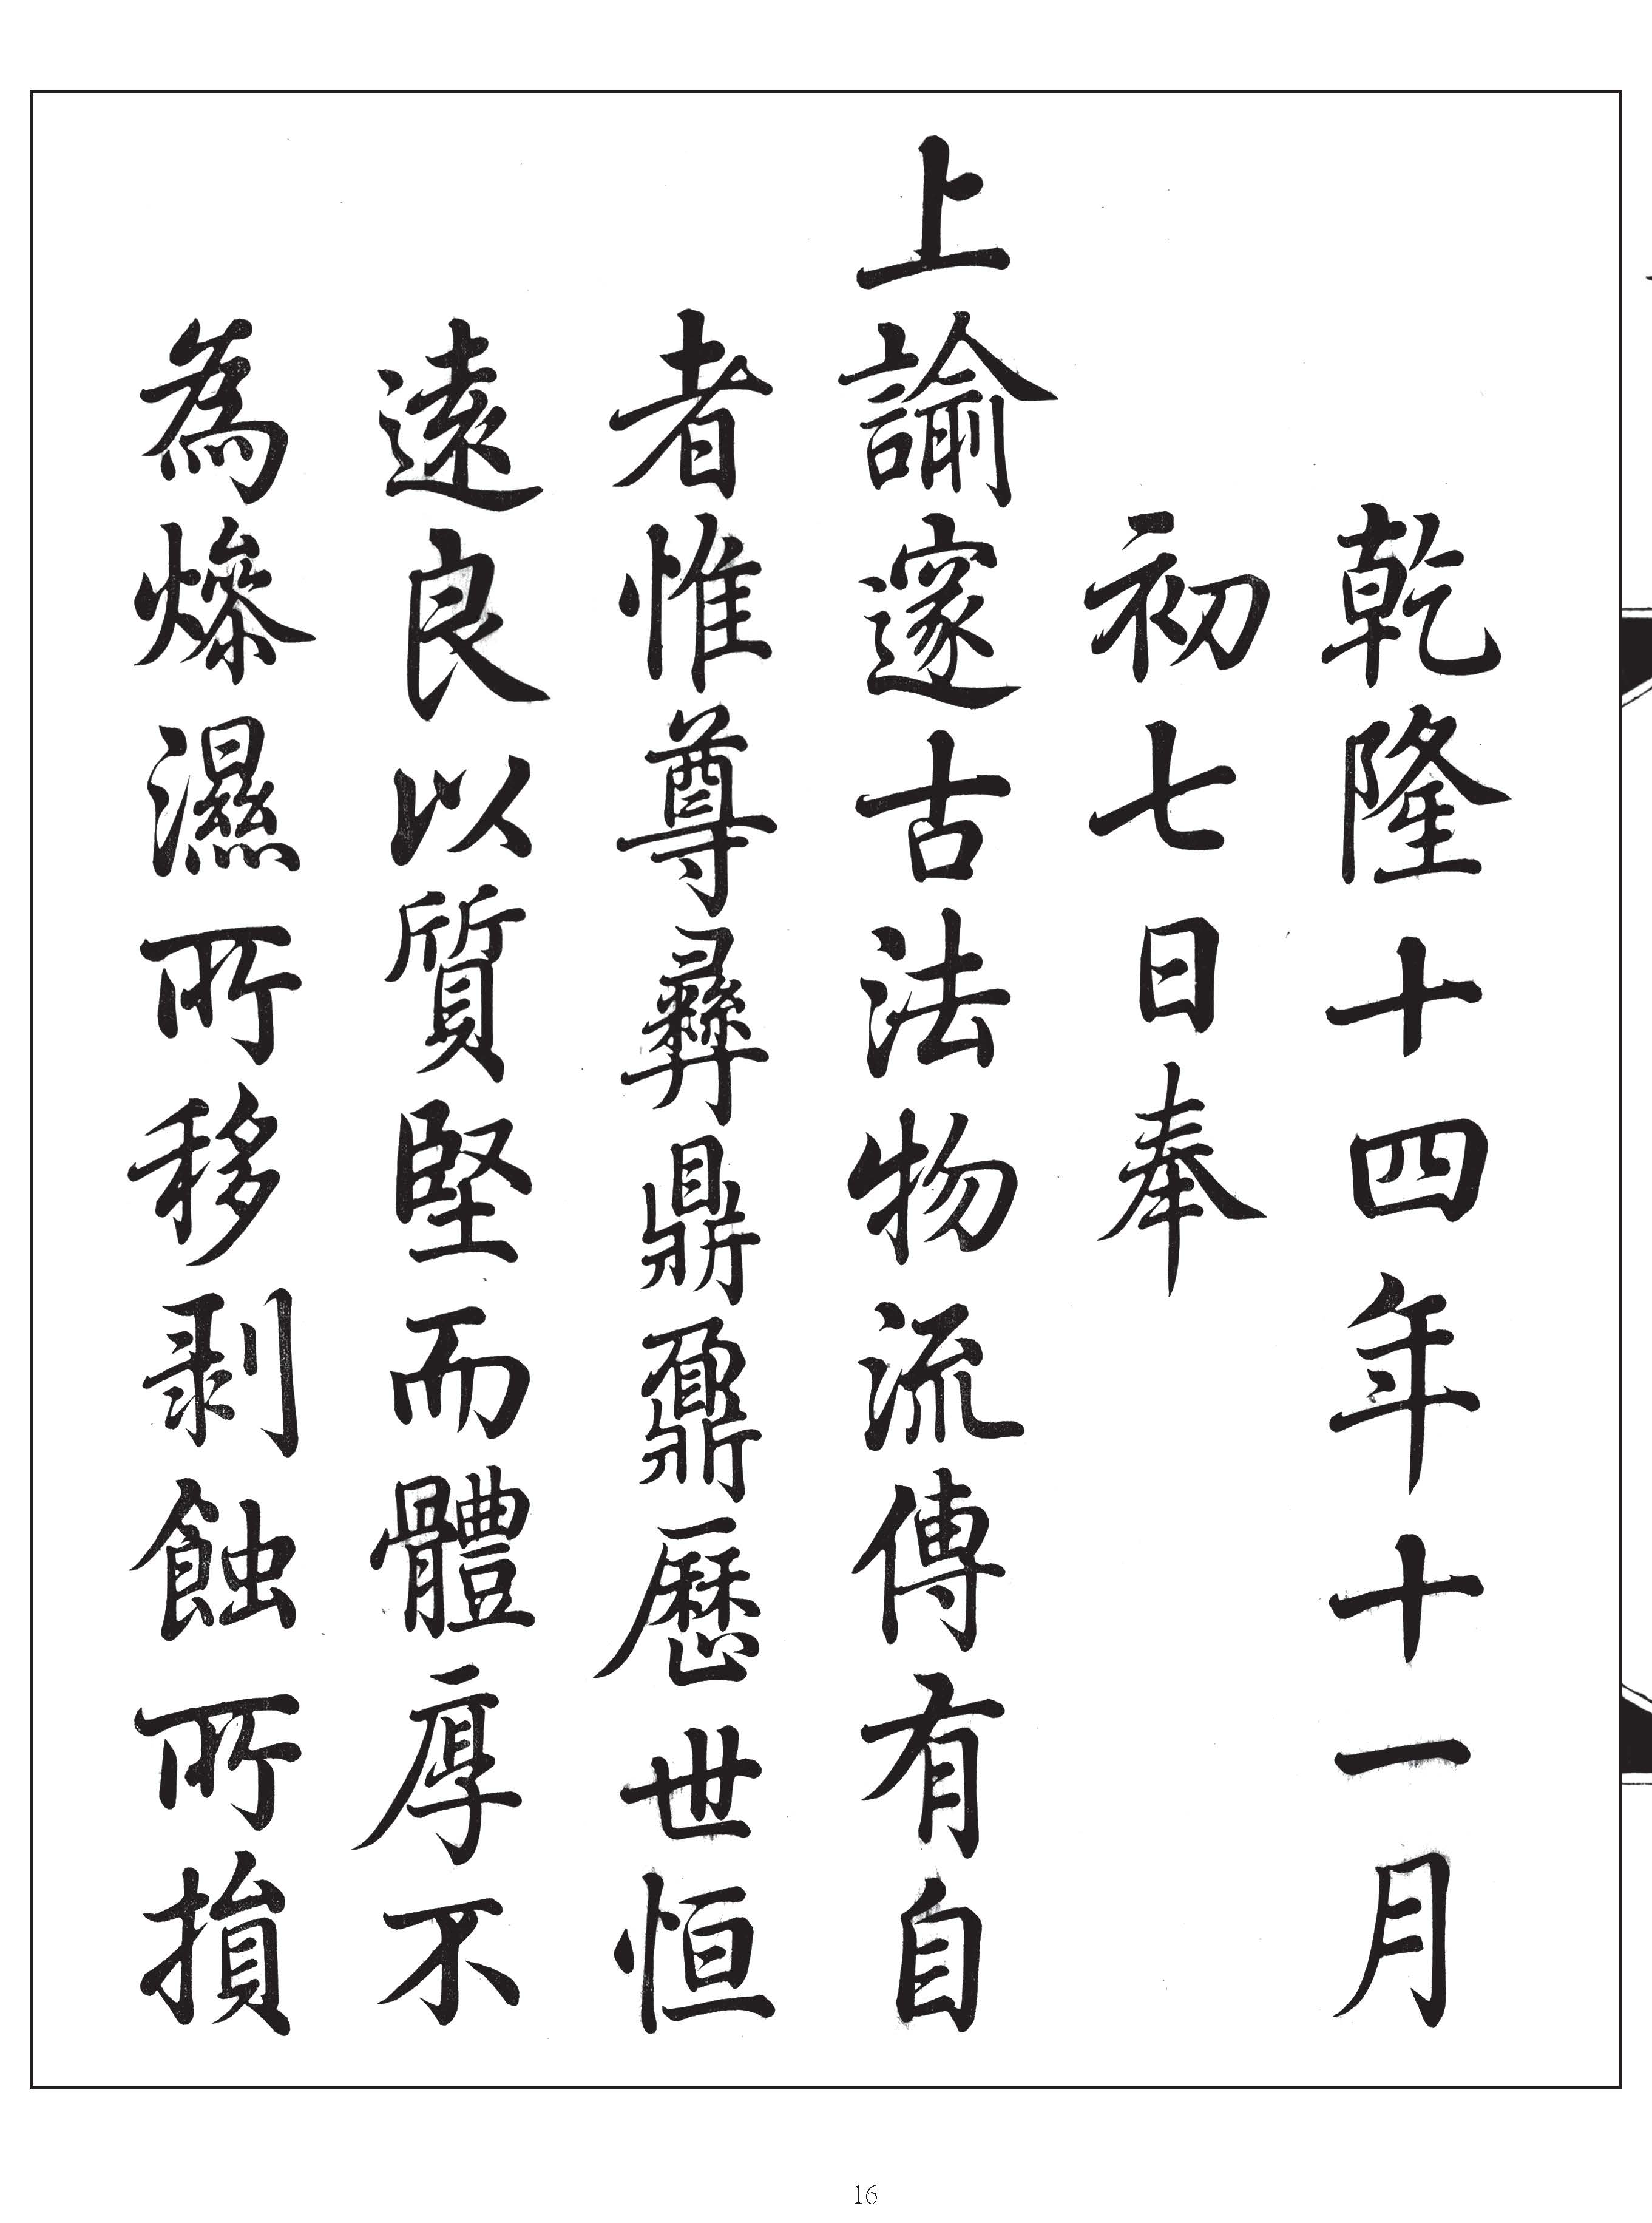 乾隆十四年十一月
初七日奉
上諭邃古法物流傳有自
者惟尊彝鼎鼐歷世恒
遠良以質堅而體厚不
為燥濕所移剥蝕所損
16